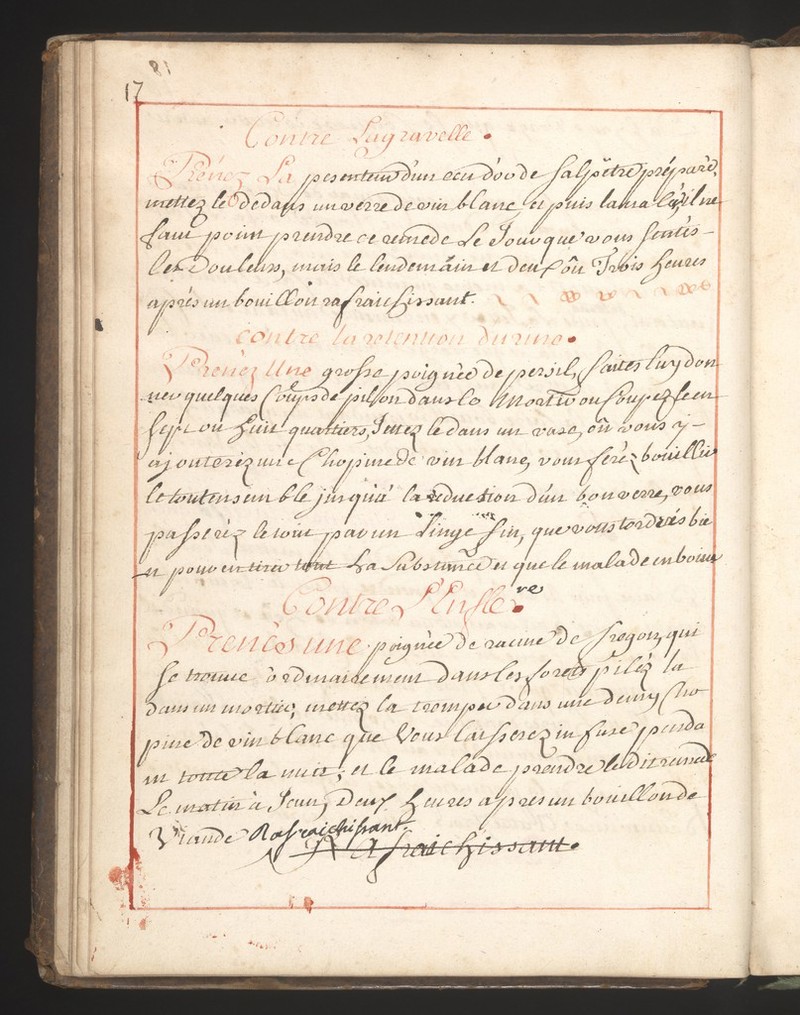 81
17
Contre Lagravelle.
Prenez La pesenteur d'un ecu d'or de salpétre préparé,
mettez le dedans un verre de vin blanc, et puis lavalés, il ne
faut point prendre ce remede Le Jour que vous sentés
les Douleurs, mais le lendemain et deux oû Trois heures
aprés un bouillon rafraichissant.
contre la retention durine.
Prenez Une grosse poignée de persil, faites luy don
ner quelques Coups de pilon dans le Mortier ou Coupez le en
sept ou huit quartiers, Jettez le dans un vase, oû vous y
ajouterez une Chopine de vin blanc, vous ferez bouillir
le tout ensemble jusqu'à la réduction d'un bon verre, vous
passerèz le tout par un Linge fin, que vous tordrés bie
n pour en tirer tout La Substance et que le malade en boive
Contre L'Enfleure
Prenés une poignée de racine de fregon, qui
se trouve ordinairement dans les forets pilèz la
dans un mortier, mettez la tremper dans une demy Cho
pine de vin blanc que Vous laisserez infuser penda
nt toutte la nuit; et le malade prendre ledit remede
Le matin à Jeun, Deux heures apres un bouillon de
Viande Rafraichissant.
Rafraichissant.